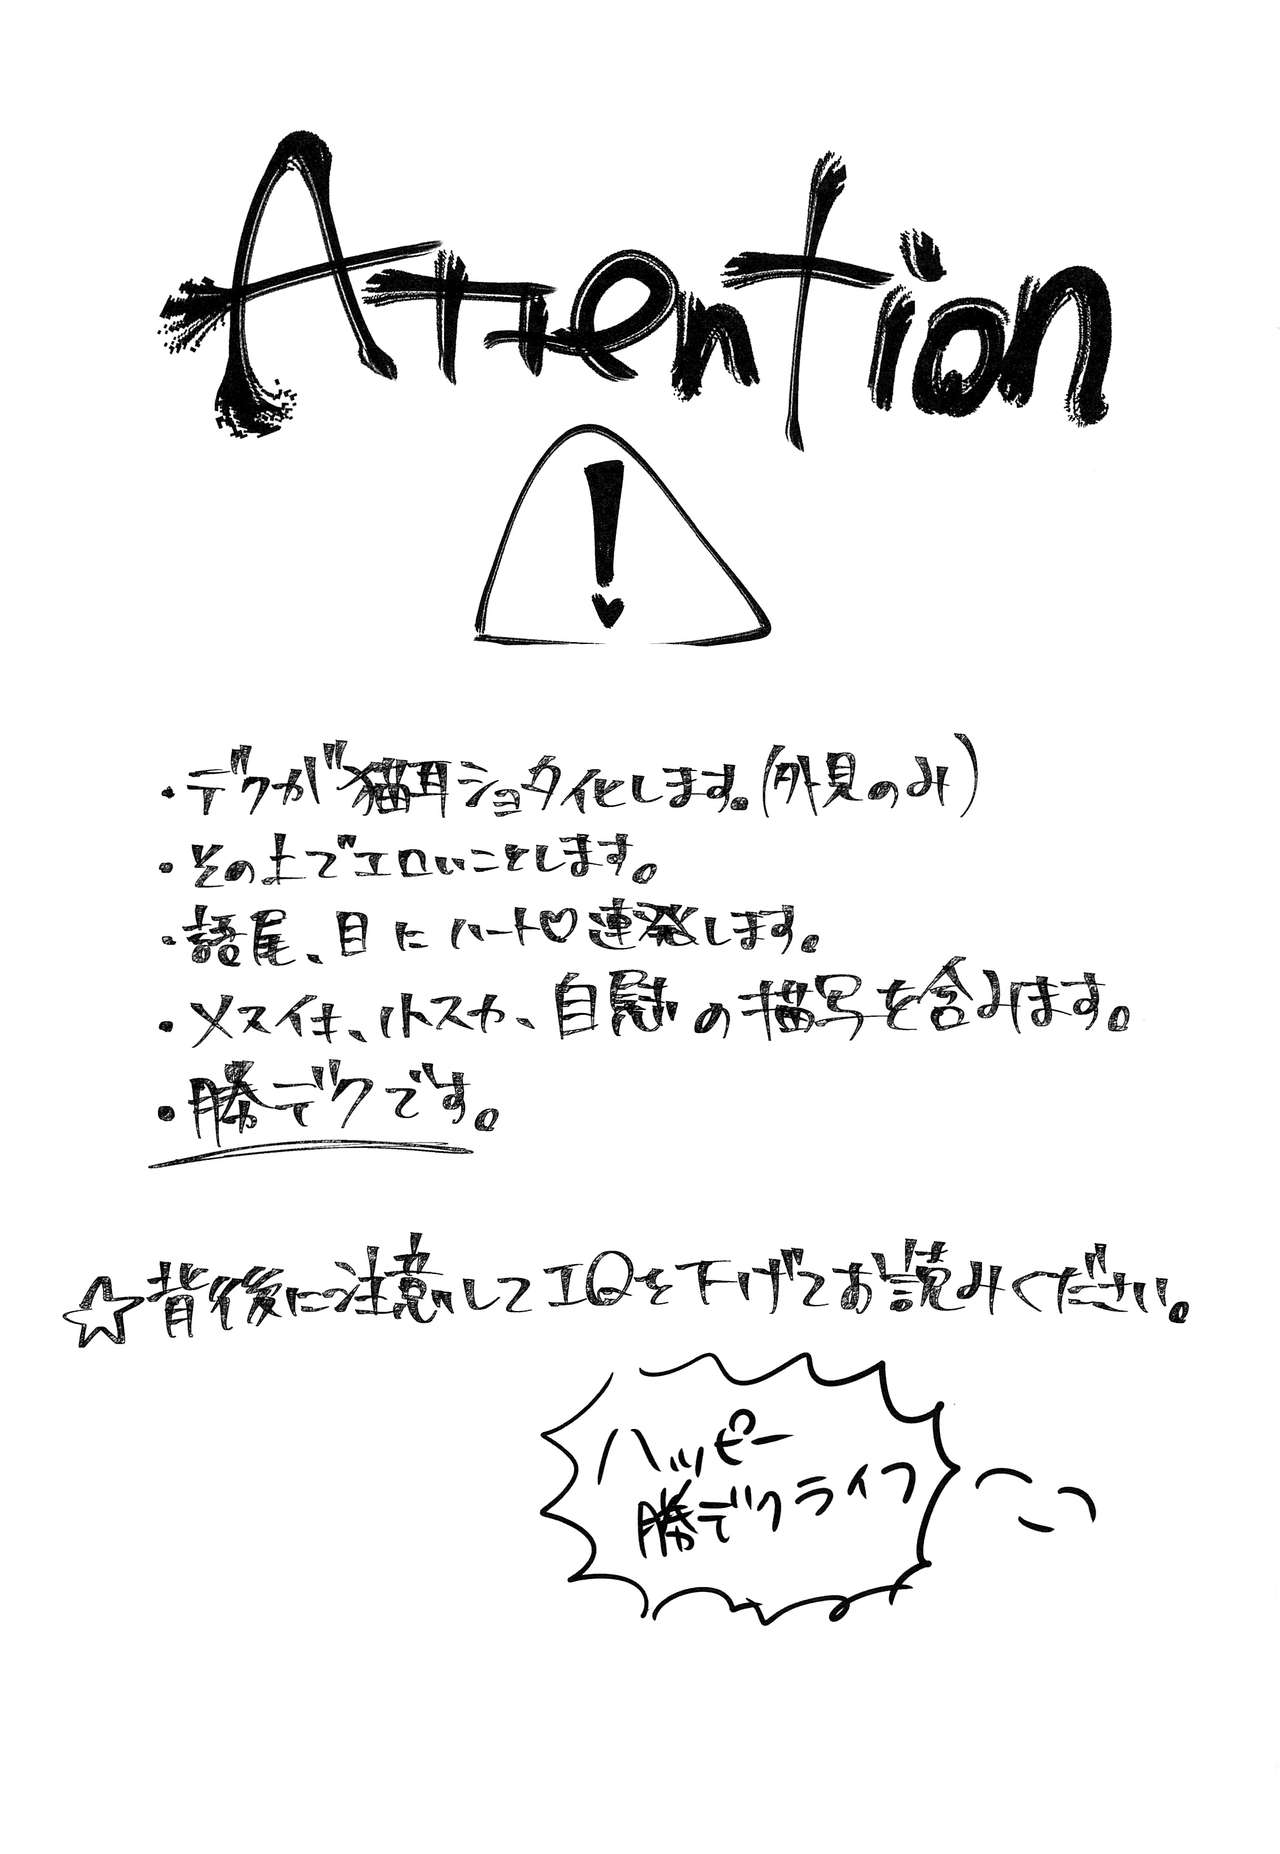 Attention
!
・デクが猫耳ショタ化します。(外見のみ)
・その上でエロいことします。
・語尾、目にハート♡連発します。
・メスイキ、小スカ、自慰の描写を含みます。
・勝デクです。
☆背後に注意してIQを下げてお読みください。
ハッピー
勝デクライフ